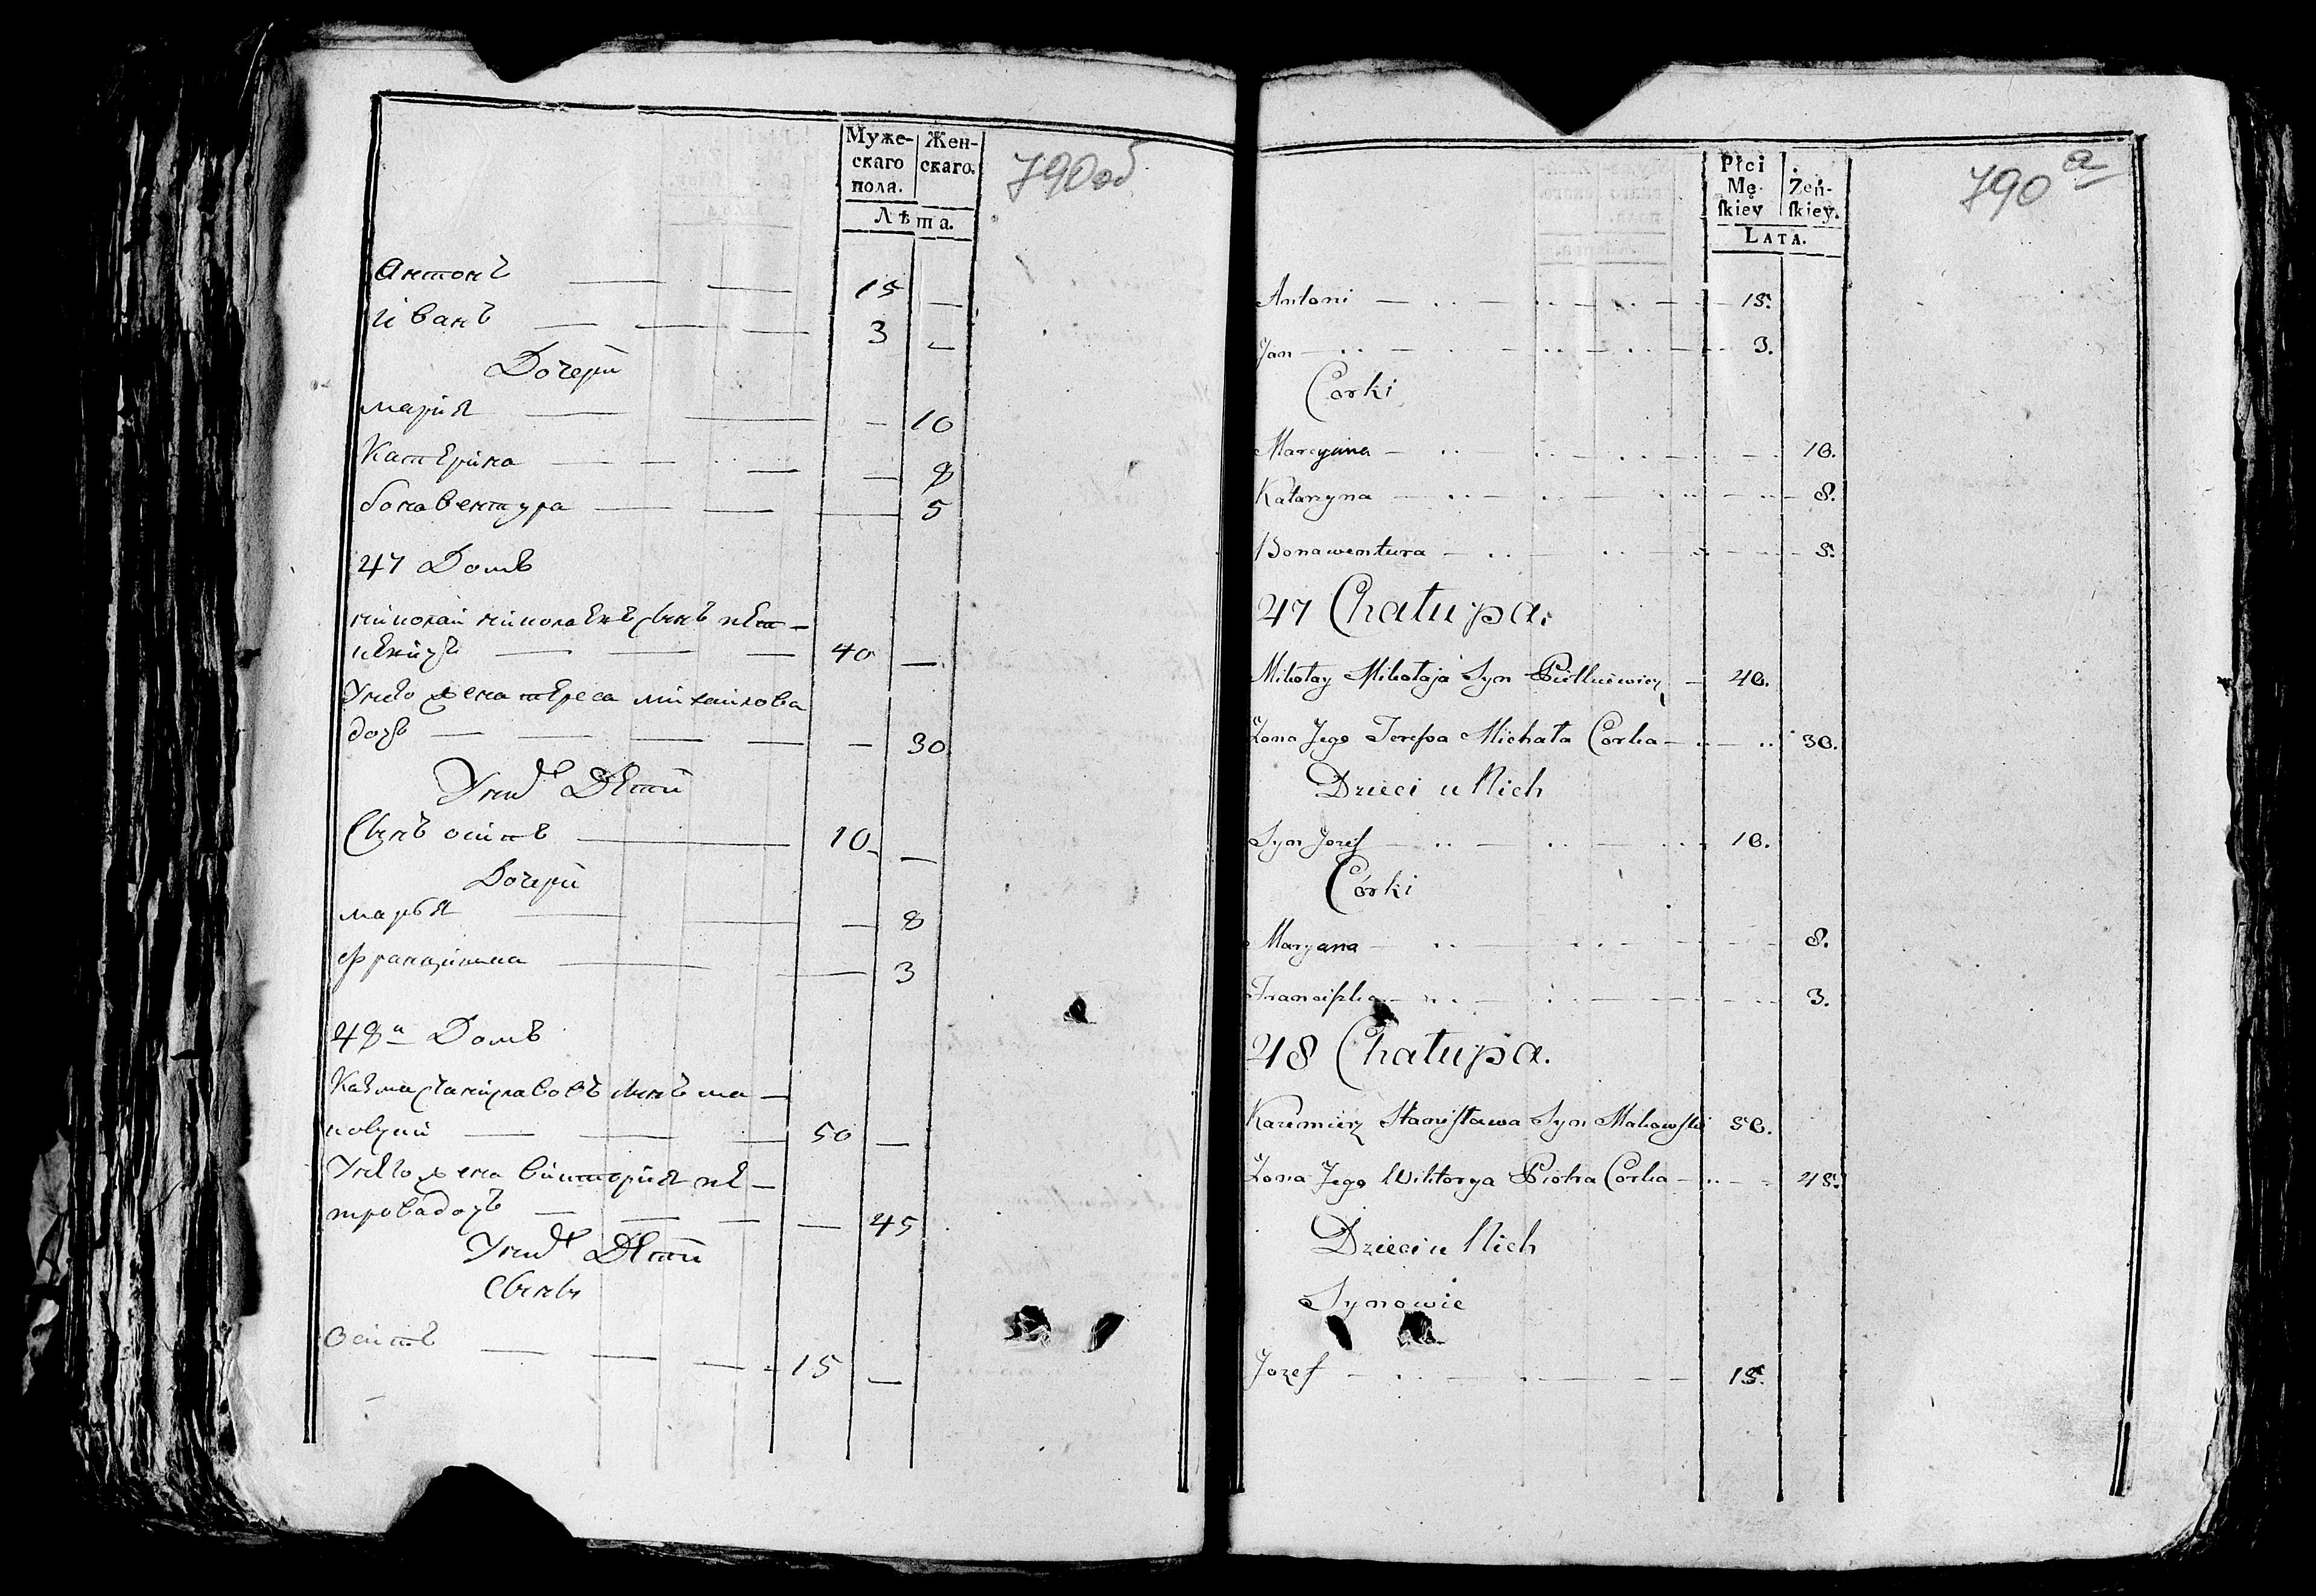 Муже- Жен-
скаго скаго.
пола.
Лѣта.
790 об
Антонъ 15 —
Иванъ 3 —
Дочери
Мария — 10
Катерина — 8
Бонавентура — 5
47 Домъ
николай николаевъ сынъ пет-
кевичь 40 —
Унего жена тереса михайлова
дочь — 30
Унихъ Дети
Сынъ осипъ 10 —
Дочери
марья — 8
Францишка — 3
48й Домъ
Казмиръ станиславовъ сынъ ма-
ковский 50 —
Унего жена виктория пе-
тровадочъ — 45
Унихъ Дети
Сыны
Осипъ 15 —
Płci
Mę- Żeń-
ſkiey ſkiey.
LATA.
790 a
Antoni 15.
Jan 3.
Corki
Maryanna 10.
Katarzyna 8.
Bonawentura 5.
47 Chałupa.
Mikołay Mikołaja Syn Pietkiewicz 40.
Żona Jego Teressa Michała Corka 30.
Dzieci u Nich
Syn Jozef 10.
Córki
Maryana 8.
Franciszka 3.
48 Chałupa.
Kazimierz Stanisława Syn Makowski 50.
Żona Jego Wiktorya Piotra Corka 45.
Dzieci u Nich
Synowie
Jozef 15.